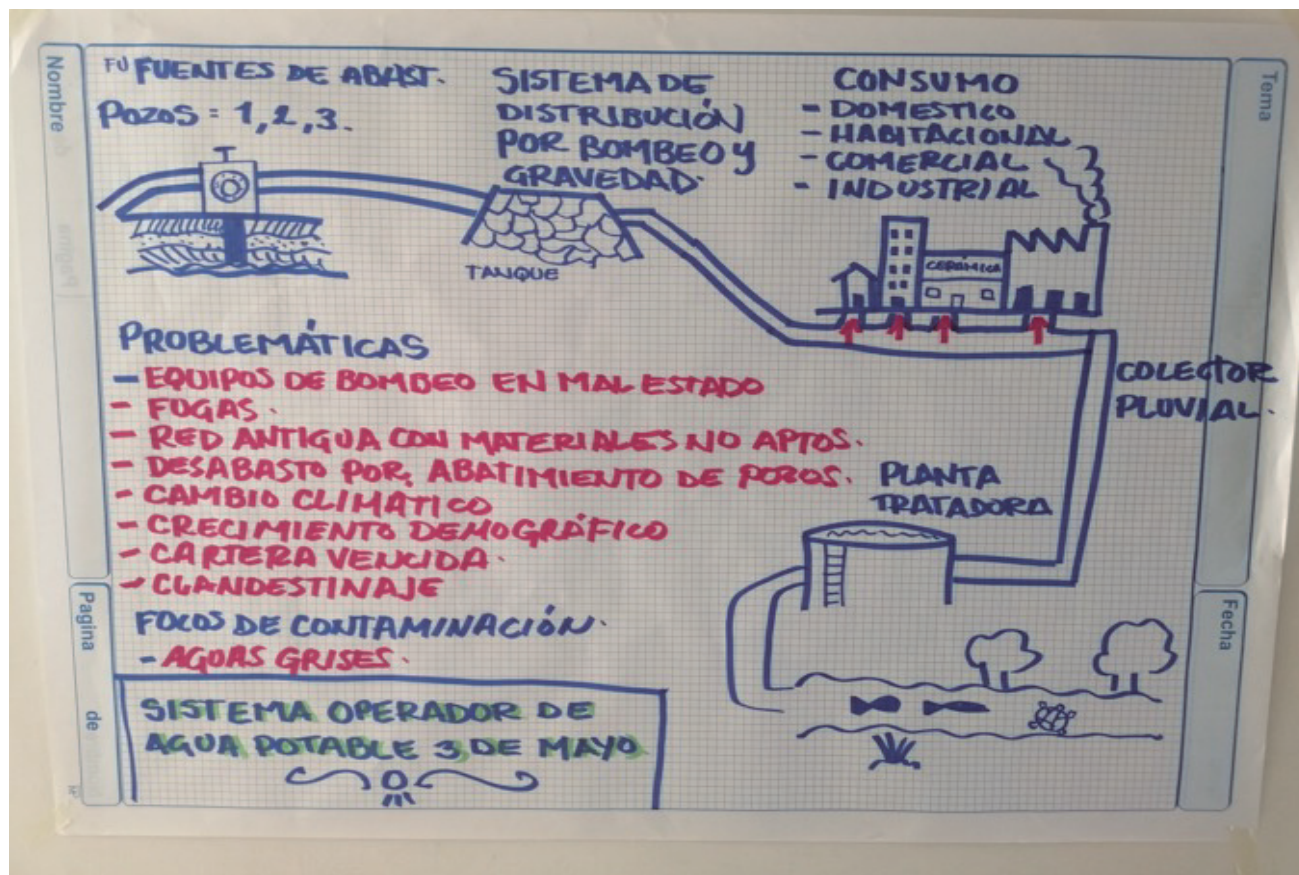 Nombre
Tema
FU FUENTES DE ABAST.
POZOS = 1, 2, 3.
SISTEMA DE
DISTRIBUCIÓN
POR BOMBEO Y
GRAVEDAD.
CONSUMO
- DOMESTICO
- HABITACIONAL
- COMERCIAL
- INDUSTRIAL
TANQUE
CERÁMICA
PROBLEMÁTICAS
- EQUIPOS DE BOMBEO EN MAL ESTADO
- FUGAS.
- RED ANTIGUA CON MATERIALES NO APTOS.
- DESABASTO POR, ABATIMIENTO DE POZOS.
- CAMBIO CLIMÁTICO
- CRECIMIENTO DEMOGRÁFICO
- CARTERA VENCIDA.
- CLANDESTINAJE
COLECTOR
PLUVIAL.
PLANTA
TRATADORA
FOCOS DE CONTAMINACIÓN.
- AGUAS GRISES.
SISTEMA OPERADOR DE
AGUA POTABLE 3 DE MAYO
Pagina de
Fecha